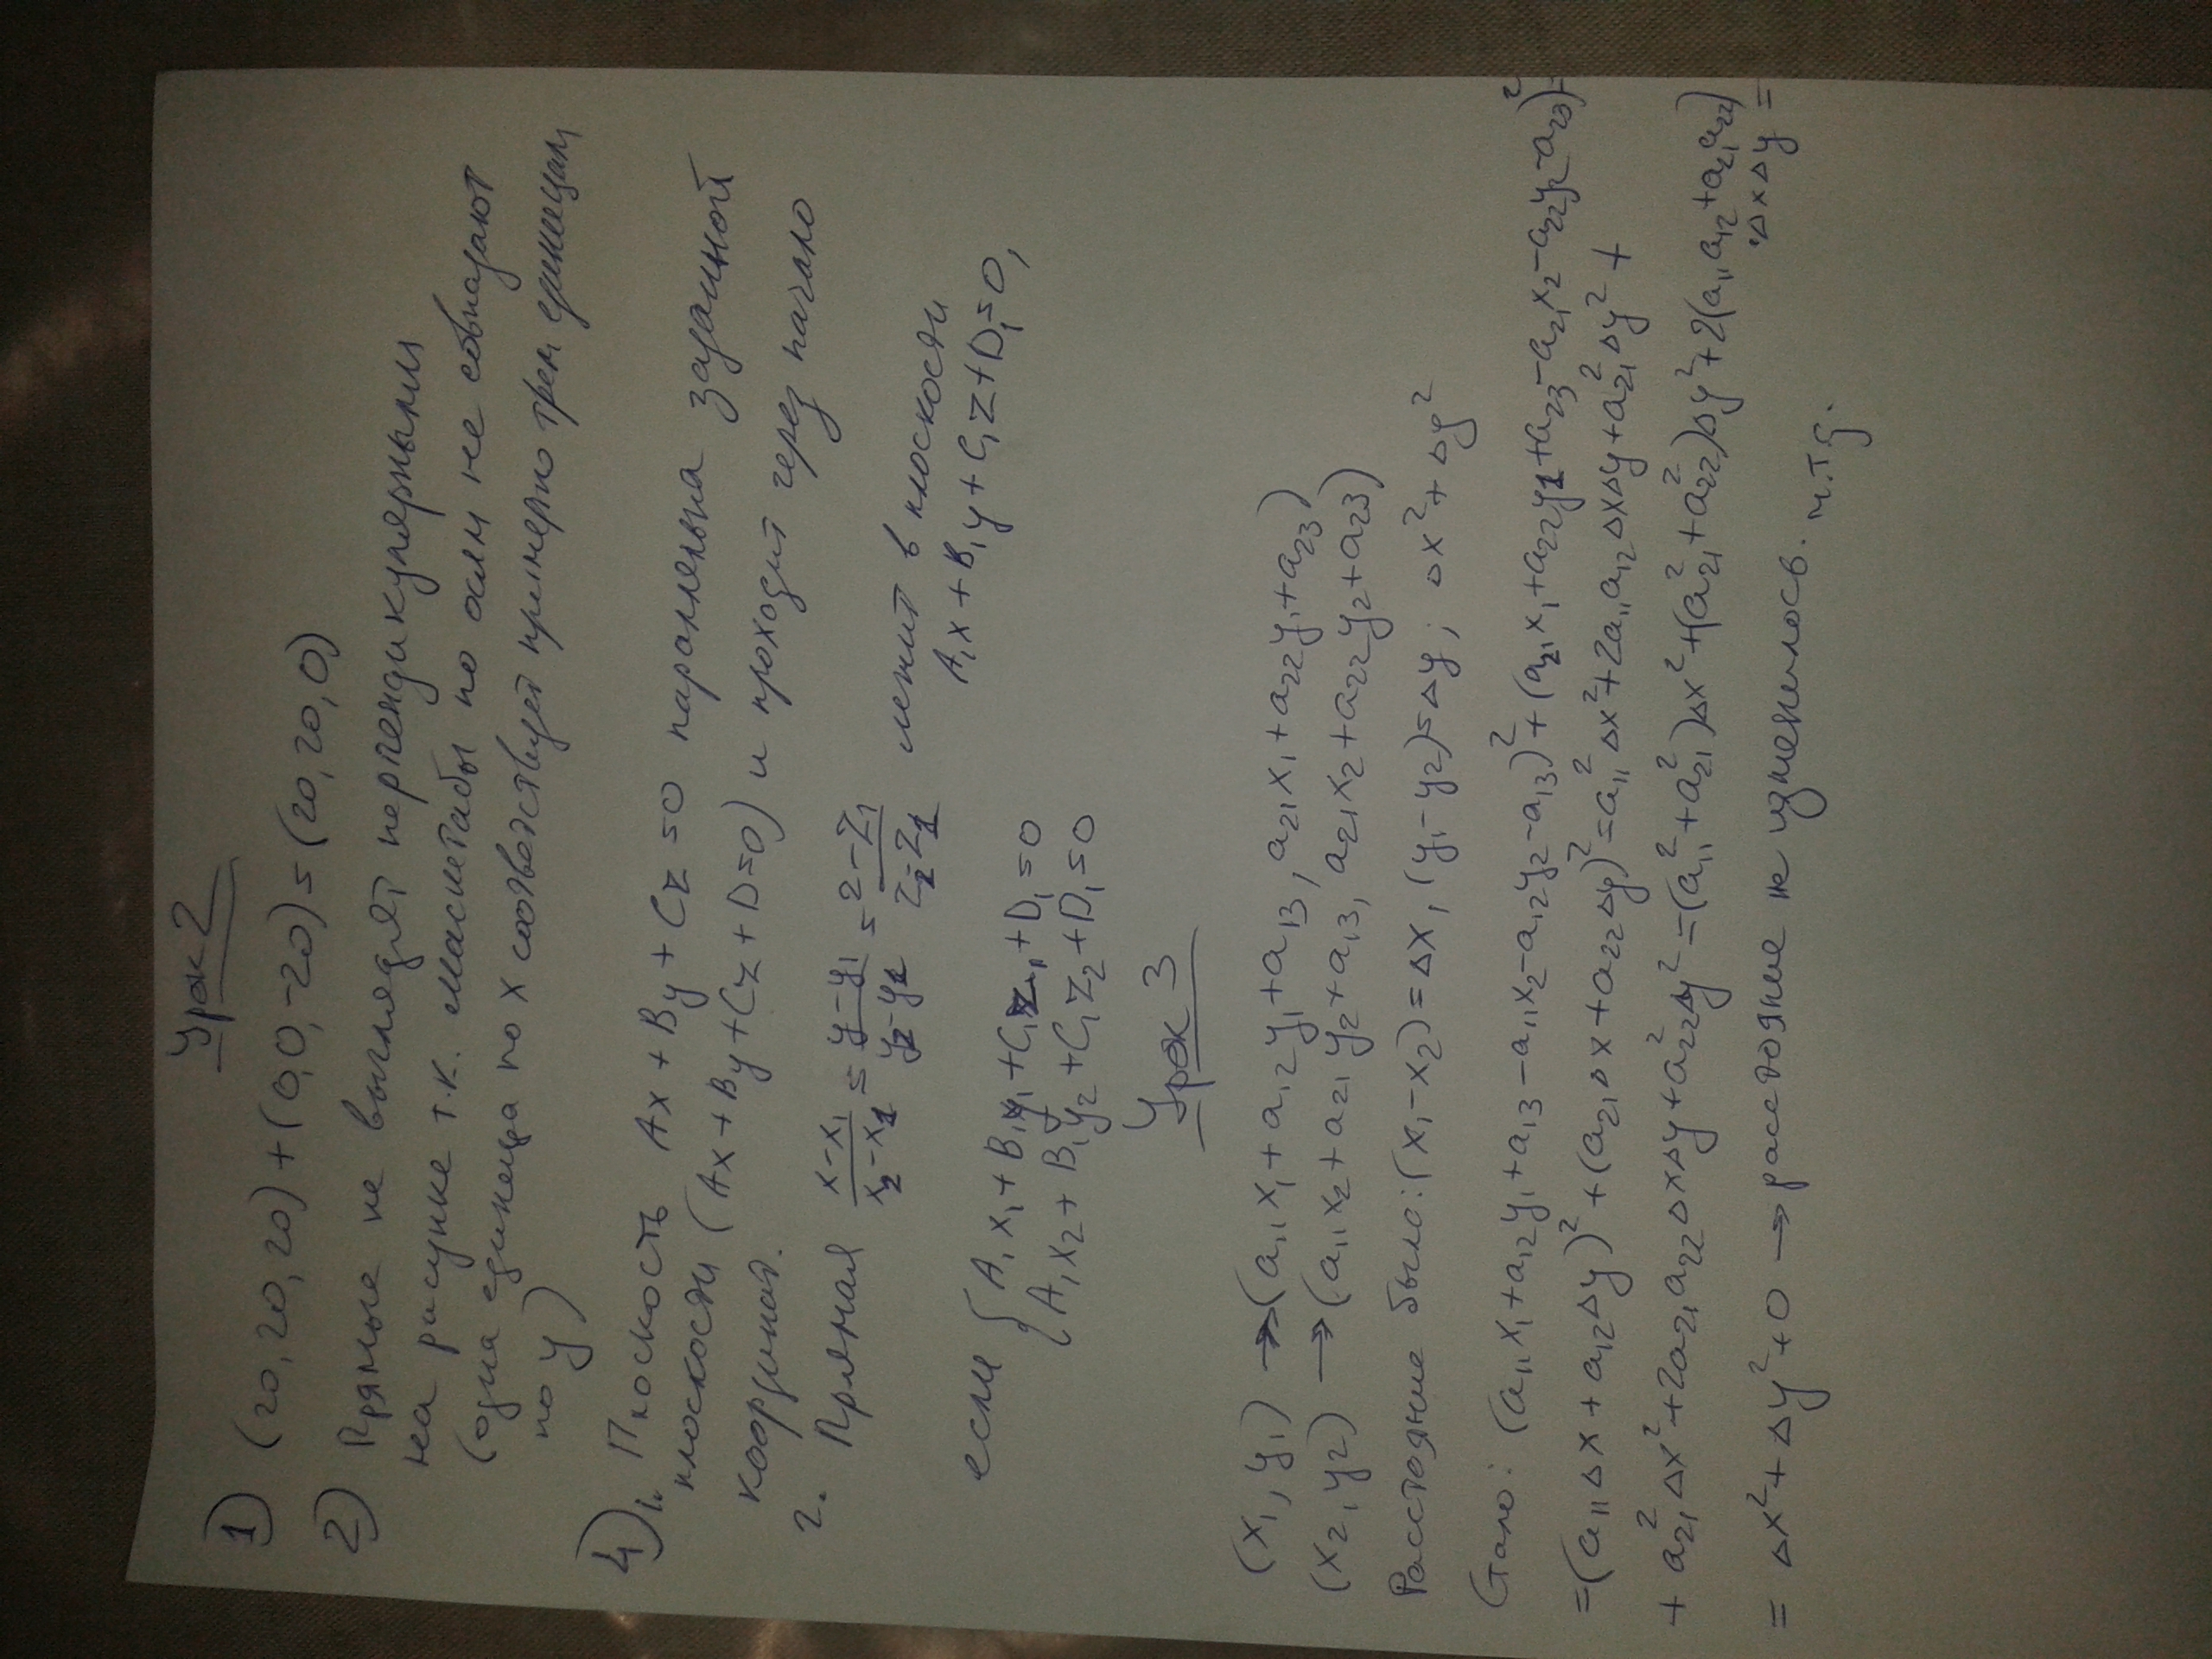 Урок 2
1) (20, 20, 20) + (0, 0, -20) = (20, 20, 0)
2) Прямые не выглядят перпендикулярными
на рисунке т.к. масштабы по осям не совпадают
(одна единица по x соответствует примерно трем единицам
по y)
4) 1. Плоскость Ax + By + Cz = 0 параллельна заданной
плоскости (Ax + By + Cz + D = 0) и проходит через начало
координат.
2. Прямая (x-x₁)/(x₂-x₁) = (y-y₁)/(y₂-y₁) = (z-z₁)/(z₂-z₁) лежит в плоскости
A₁x + B₁y + C₁z + D₁ = 0,
если { A₁x₁ + B₁y₁ + C₁z₁ + D₁ = 0
A₁x₂ + B₁y₂ + C₁z₂ + D₁ = 0
Урок 3
(x₁, y₁) → (a₁₁x₁ + a₁₂y₁ + a₁₃, a₂₁x₁ + a₂₂y₁ + a₂₃)
(x₂, y₂) → (a₁₁x₂ + a₂₁y₂ + a₁₃, a₂₁x₂ + a₂₂y₂ + a₂₃)
Расстояние было: (x₁-x₂) = Δx, (y₁-y₂) = Δy; Δx² + Δy²
Стало: (a₁₁x₁ + a₁₂y₁ + a₁₃ - a₁₁x₂ - a₁₂y₂ - a₁₃)² + (a₂₁x₁ + a₂₂y₁ + a₂₃ - a₂₁x₂ - a₂₂y₂ - a₂₃)² =
= (a₁₁Δx + a₁₂Δy)² + (a₂₁Δx + a₂₂Δy)² = a₁₁²Δx² + 2a₁₁a₁₂ΔxΔy + a₂₁²Δy² +
+ a₂₁²Δx² + 2a₂₁a₂₂ΔxΔy + a₂₂²Δy² = (a₁₁² + a₂₁²)Δx² + (a₂₁² + a₂₂²)Δy² + 2(a₁₁a₁₂ + a₂₁a₂₂)
·ΔxΔy =
= Δx² + Δy² + 0 → расстояние не изменилось. ч.т.д.